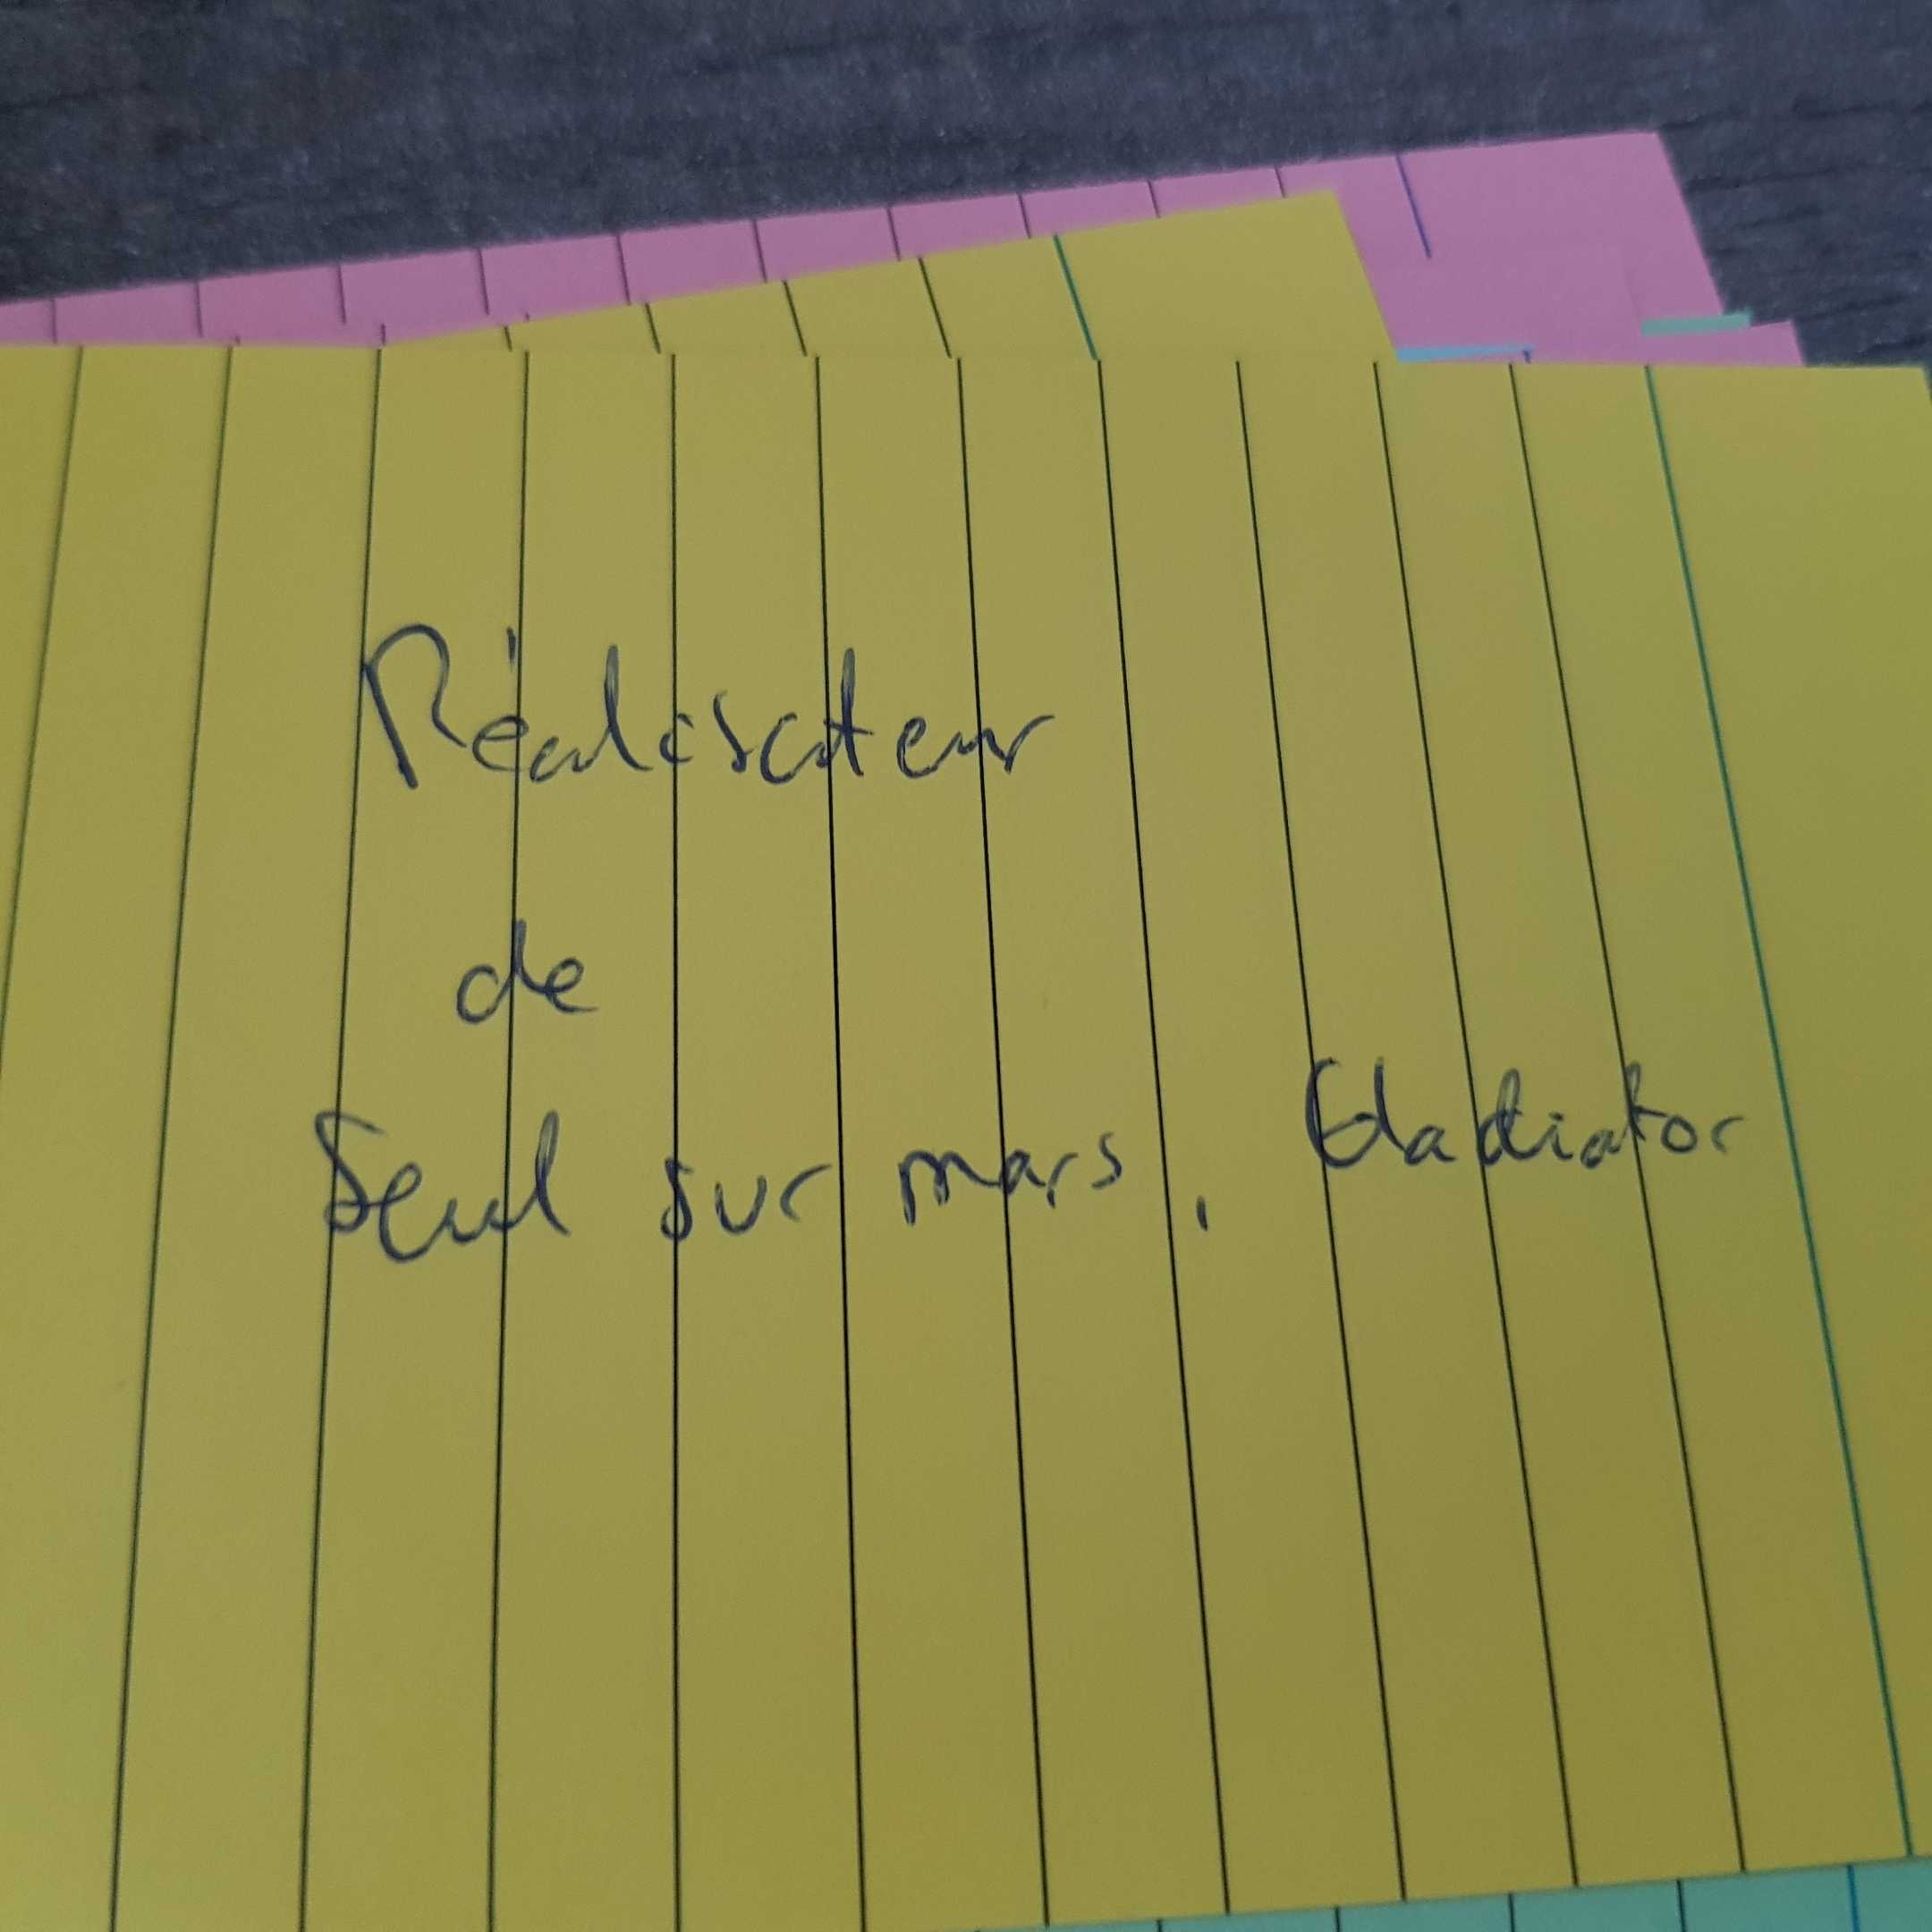 Réalisateur
de
Seul sur mars, Gladiator